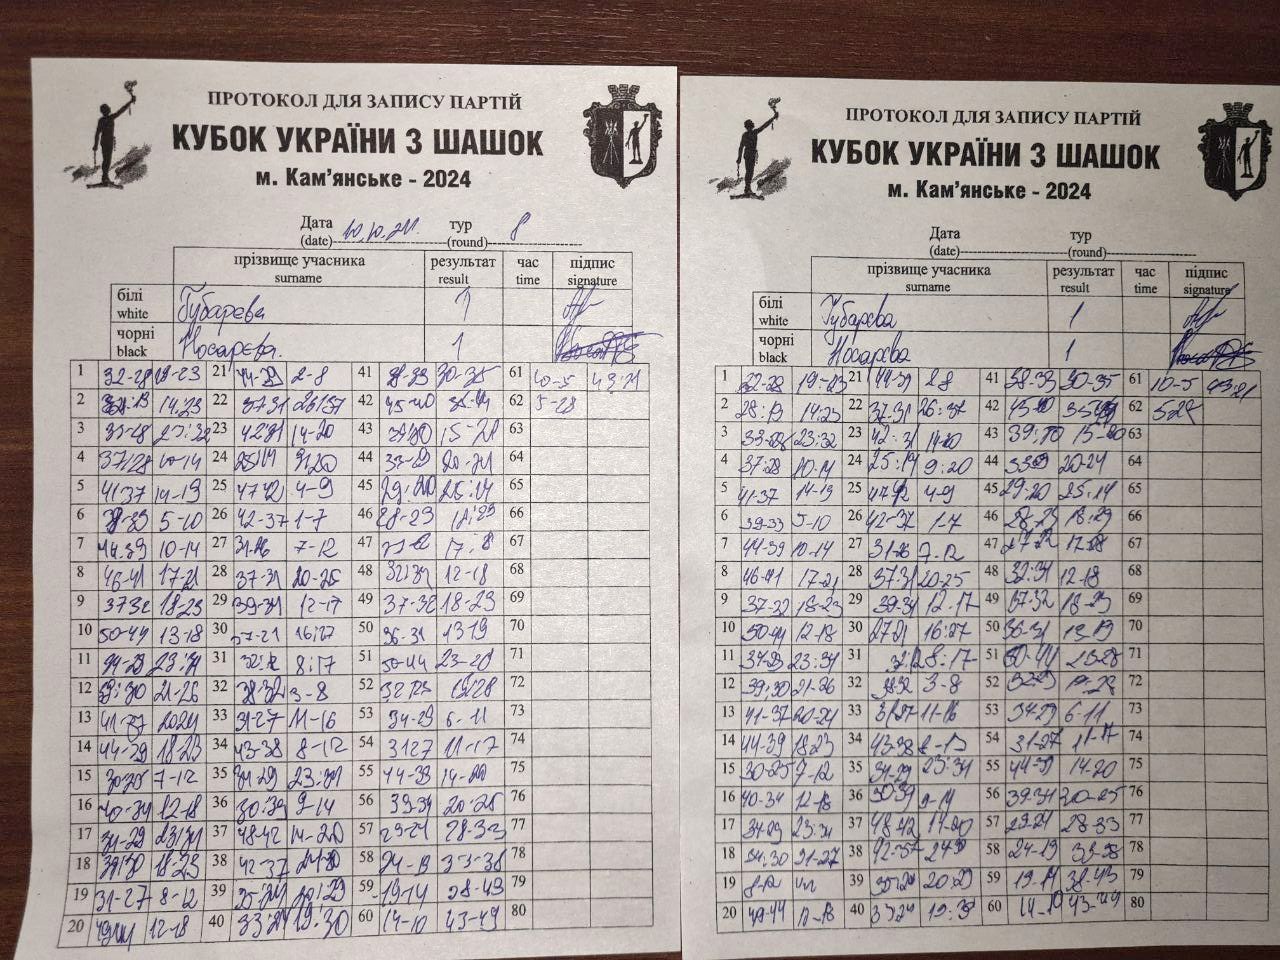 ПРОТОКОЛ ДЛЯ ЗАПИСУ ПАРТІЙ
КУБОК УКРАЇНИ З ШАШОК
м. Кам'янське - 2024
Дата 10.10.24. тур 8
(date) (round)
прізвище учасника результат час підпис
surname result time signature
білі Губарева 1
white
чорні Носарєва. 1
black
1 32-28 19-23 21 44-39 2-8 41 38-33 30-35 61 10-5 43:21
2 28:19 14:23 22 37:31 26:37 42 45-40 62 5-28
3 33-28 23:32 23 42:31 14-20 43 39:30 15-20 63
4 37:28 10-14 24 25:14 9:20 44 33-29 20-24 64
5 41-37 14-19 25 47-42 4-9 45 29:20 25:14 65
6 39-33 5-10 26 42-37 1-7 46 28-23 18:29 66
7 44-39 10-14 27 31-26 7-12 47 17:8 67
8 46-41 17-21 28 37-31 20-25 48 12-18 68
9 37-32 18-23 29 39-34 12-17 49 37-32 18-23 69
10 50-44 13-18 30 27-21 16:27 50 36-31 13-19 70
11 34-29 23:34 31 8:17 51 50-44 23-28 71
12 39:30 21-26 32 38-32 3-8 52 19:28 72
13 41-37 20-24 33 31-27 11-16 53 34-29 6-11 73
14 44-39 18-23 34 43-38 8-12 54 31-27 11-17 74
15 30-25 7-12 35 34-29 23:34 55 44-39 14-20 75
16 40-34 12-18 36 30:39 9-14 56 39-34 20-25 76
17 34-29 23:34 37 48-42 14-20 57 29-24 28-33 77
18 39:30 18-23 38 42-37 58 24-19 33-38 78
19 31-27 8-12 39 35:24 20:29 59 19-14 38-43 79
20 49-44 12-18 40 33:24 19:30 60 14-10 43-49 80
ПРОТОКОЛ ДЛЯ ЗАПИСУ ПАРТІЙ
КУБОК УКРАЇНИ З ШАШОК
м. Кам'янське - 2024
Дата тур
(date) (round)
прізвище учасника результат час підпис
surname result time signature
білі Губарєва 1
white
чорні Носарєва 1
black
1 32-28 19-23 21 44-39 2-8 41 38-33 30-35 61 10-5 43:21
2 28:19 14:23 22 37:31 26:37 42 45-40 62 5-28
3 33-28 23:32 23 42:31 14-20 43 39:30 15-20 63
4 37:28 10-14 24 25:14 9:20 44 33-29 20-24 64
5 41-37 14-19 25 47-42 4-9 45 29:20 25:14 65
6 39-33 5-10 26 42-37 1-7 46 28-23 18:29 66
7 44-39 10-14 27 31-26 7-12 47 27-22 67
8 46-41 17-21 28 37-31 20-25 48 12-18 68
9 37-32 18-23 29 39-34 12-17 49 37-32 18-23 69
10 50-44 12-18 30 27-21 16:27 50 36-31 13-19 70
11 34-29 23:34 31 8:17 51 50-44 23-28 71
12 39:30 21-26 32 38-32 3-8 52 72
13 41-37 20-24 33 31-27 11-16 53 34-29 6-11 73
14 44-39 18-23 34 43-38 54 31-27 11-17 74
15 30-25 7-12 35 34-29 23:34 55 44-39 14-20 75
16 40-34 12-18 36 30:39 9-14 56 39-34 20-25 76
17 34-29 23:34 37 48-42 14-20 57 29-24 28-33 77
18 34:30 38 42-37 58 24-19 33-38 78
19 39 35:24 20:29 59 19-14 38-43 79
20 49-44 12-18 40 33:24 60 14-10 43-49 80